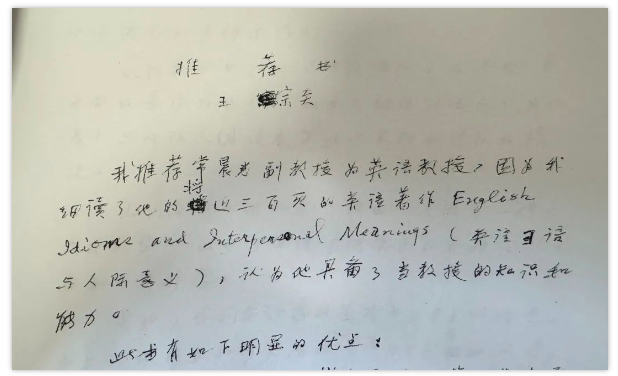 推荐书
王宗炎
我推荐常晨光副教授为英语教授，因为我
细读了他的将近三百页的英语著作 English
Idioms and Interpersonal Meanings（英语习语
与人际意义），认为他具备了当教授的知识和
能力。
此书有如下明显的优点：